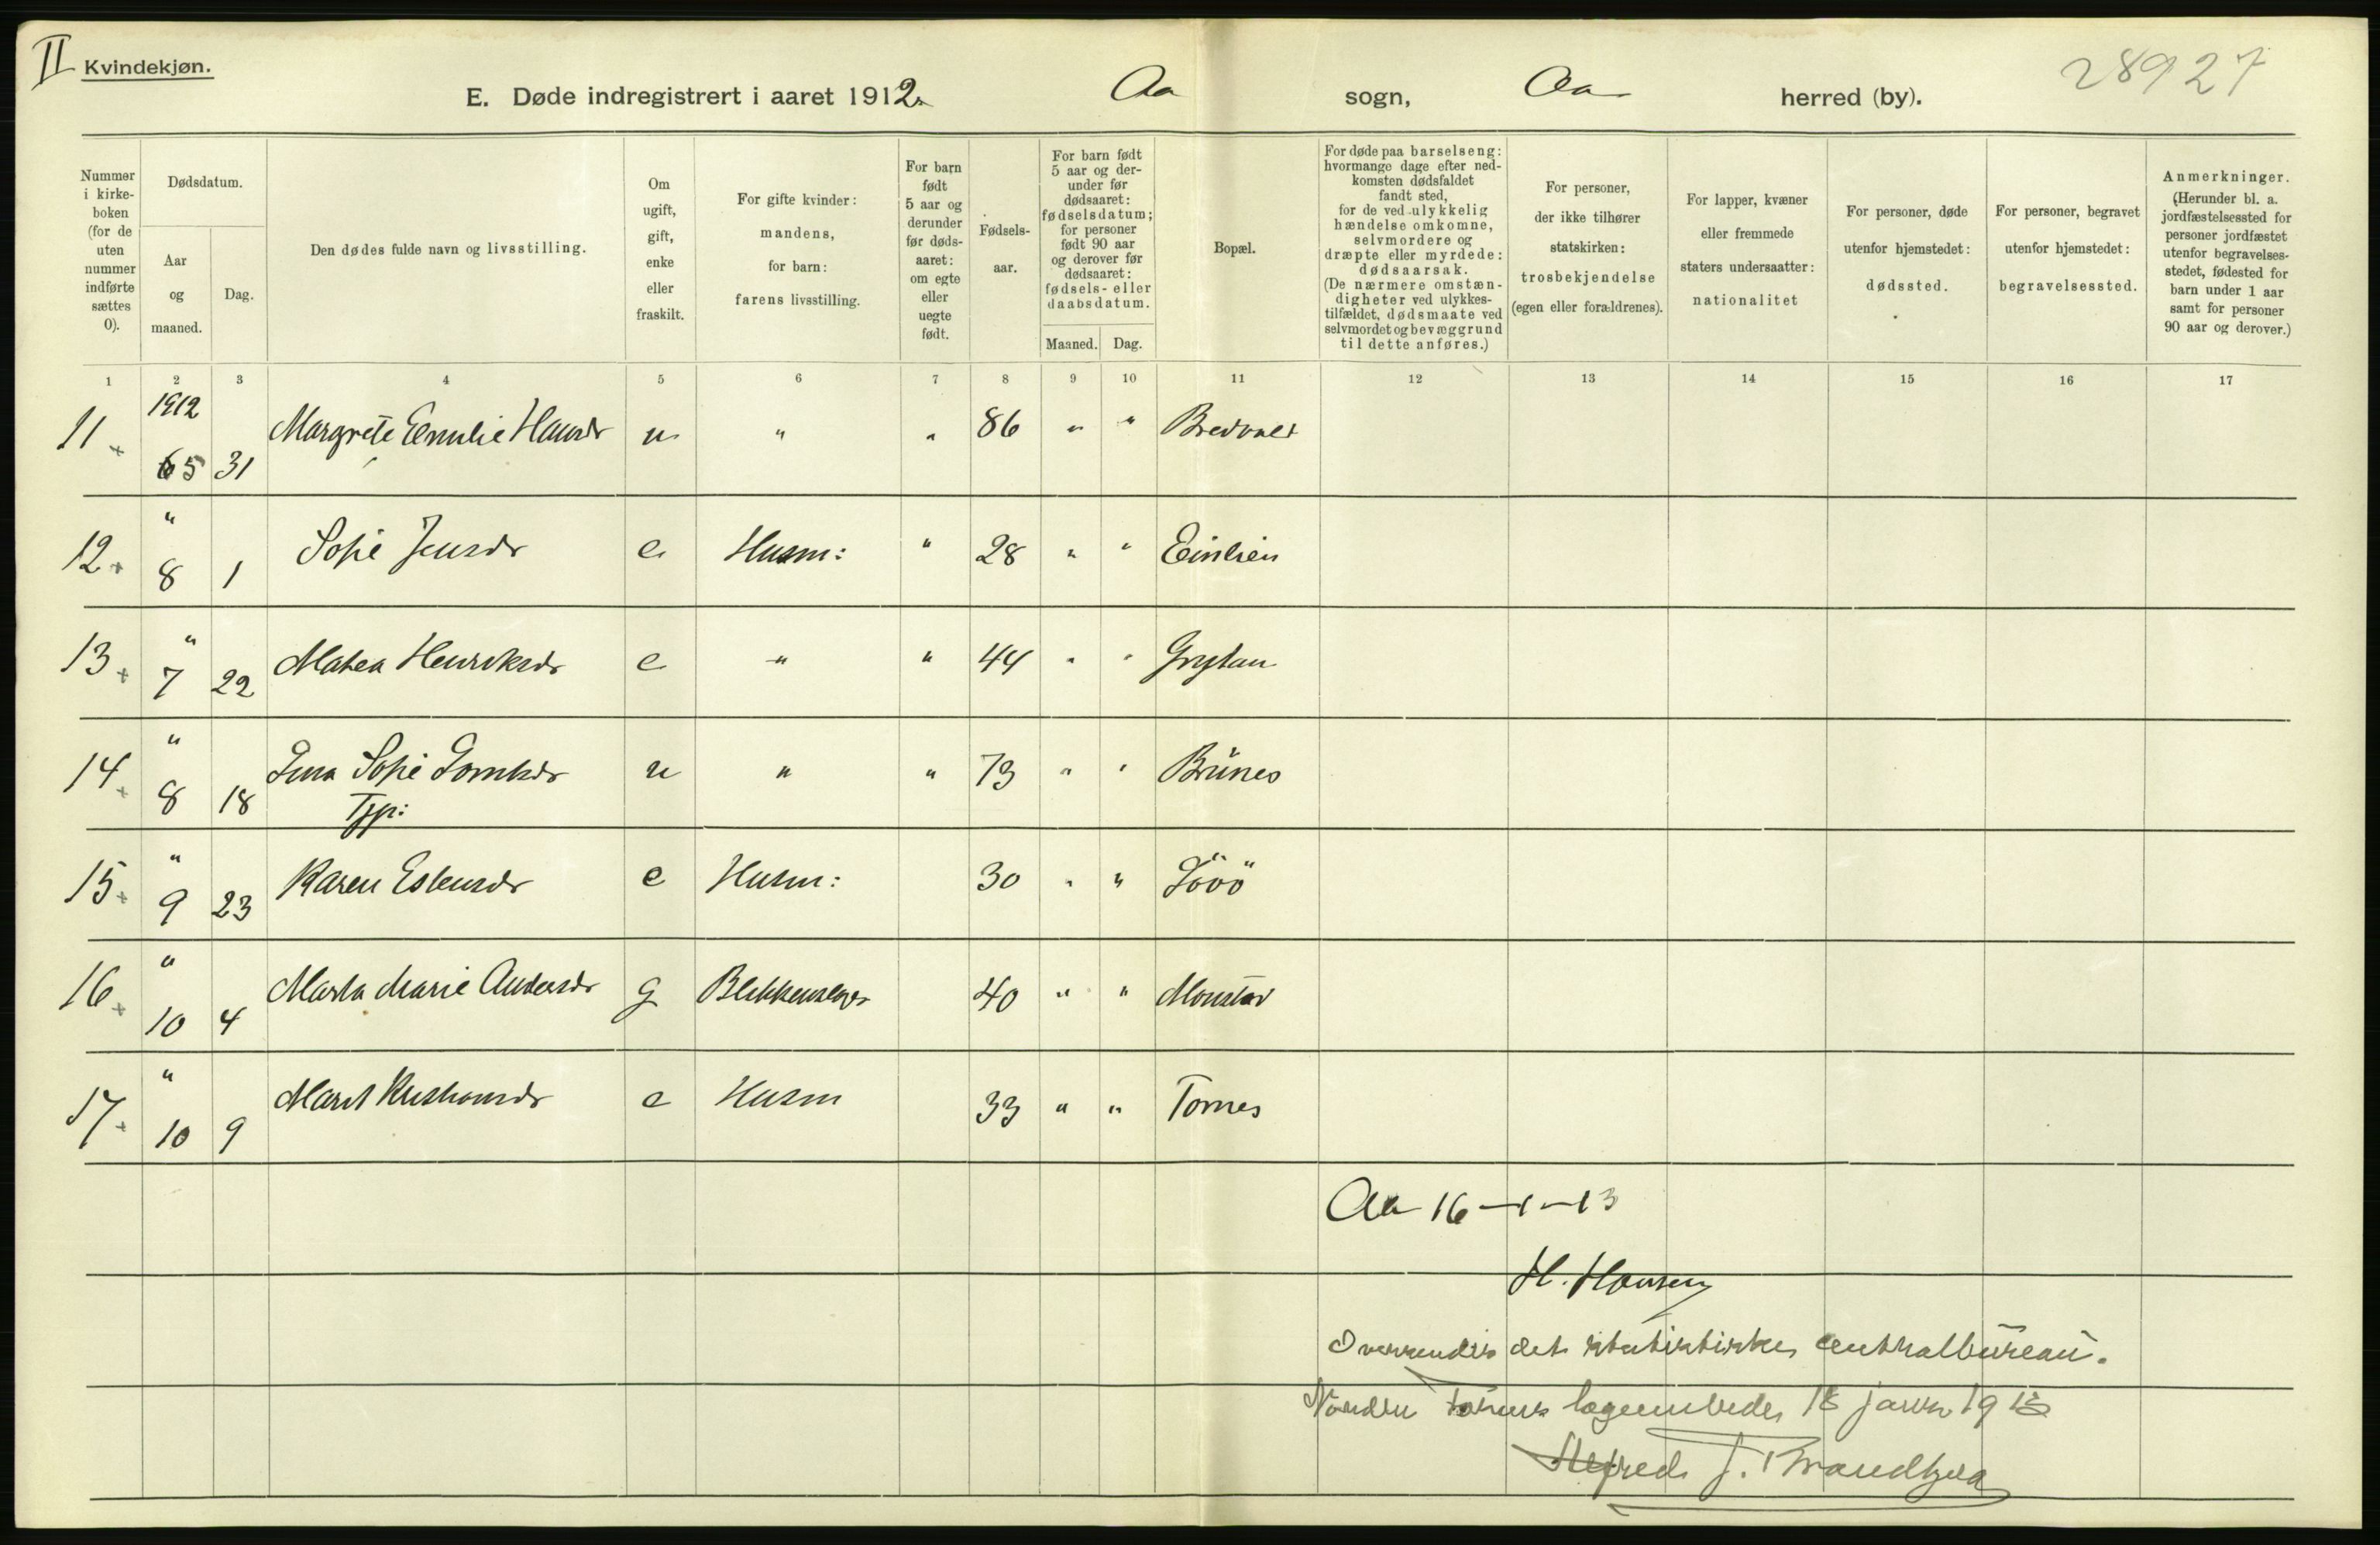 II Kvindekjøn.
28927
E. Døde indregistrert i aaret 1912. Aa sogn, Aa herred (by).
Nummer i kirke-boken (for de uten nummer indførte sættes 0).
Dødsdatum.
Aar og maaned.
Dag.
Den dødes fulde navn og livsstilling.
Om ugift, gift, enke eller fraskilt.
For gifte kvinder: mandens, for barn: farens livsstilling.
For barn født 5 aar og derunder før døds-aaret: om egte eller uegte født.
Fødsels-aar.
For barn født 5 aar og der-under før dødsaaret: fødselsdatum; for personer født 90 aar og derover før dødsaaret: fødsels- eller daabsdatum.
Maaned. Dag.
Bopæl.
For døde paa barselseng: hvormange dage efter ned-komsten dødsfaldet fandt sted, for de ved ulykkelig hændelse omkomne, selvmordere og dræpte eller myrdede: dødsaarsak. (De nærmere omstæn-digheter ved ulykkes-tilfældet, dødsmaate ved selvmordet og bevæggrund til dette anføres.)
For personer, der ikke tilhører statskirken: trosbekjendelse (egen eller forældrenes).
For lapper, kvæner eller fremmede staters undersaatter: nationalitet
For personer, døde utenfor hjemstedet: dødssted.
For personer, begravet utenfor hjemstedet: begravelsessted.
Anmerkninger. (Herunder bl. a. jordfæstelsessted for personer jordfæstet utenfor begravelses-stedet, fødested for barn under 1 aar samt for personer 90 aar og derover.)
1 2 3 4 5 6 7 8 9 10 11 12 13 14 15 16 17
11 + 1912 5 31 Margrete Emilie Hansdr u " " 86 " " Bredvold
12 + " 8 1 Sofie Jensdr e Husm: " 28 " "
13 + " 7 22 Matea Henriksdr e " " 44 " " Grytan
14 + " 8 18 Sofie u " " 73 " "
Tjp:
15 + " 9 23 Karen Estensdr e Husm: 30 " "
16 + " 10 4 Marta Marie Andersdr g Blikkenslager 40 " "
17 + " 10 9 Marit Kristiansdr e Husm 33 " " Tornes
Aa 16-1-13
H. Hansen
Oversendes det statistiske centralbureau.
lægeembede, 18 januar 1913
J.